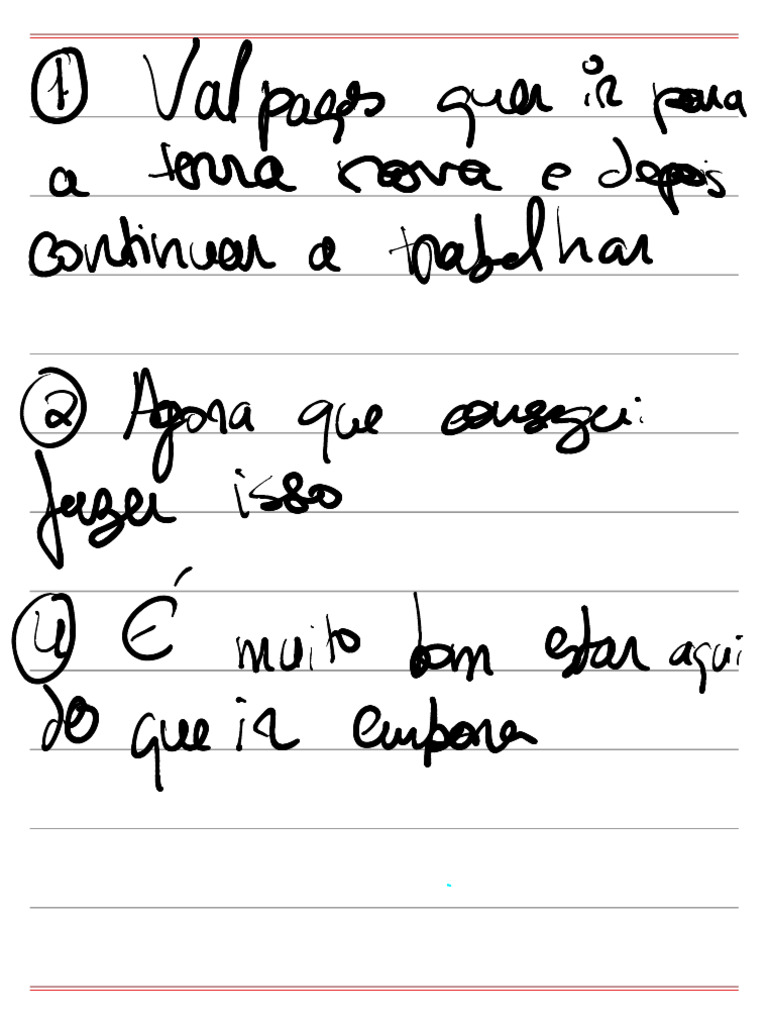 ① Valpaços quer ir para
a terra nova e depois
continuar a trabalhar
② Agora que consegui
fazer isso
④ É muito bom estar aqui
do que ir embora